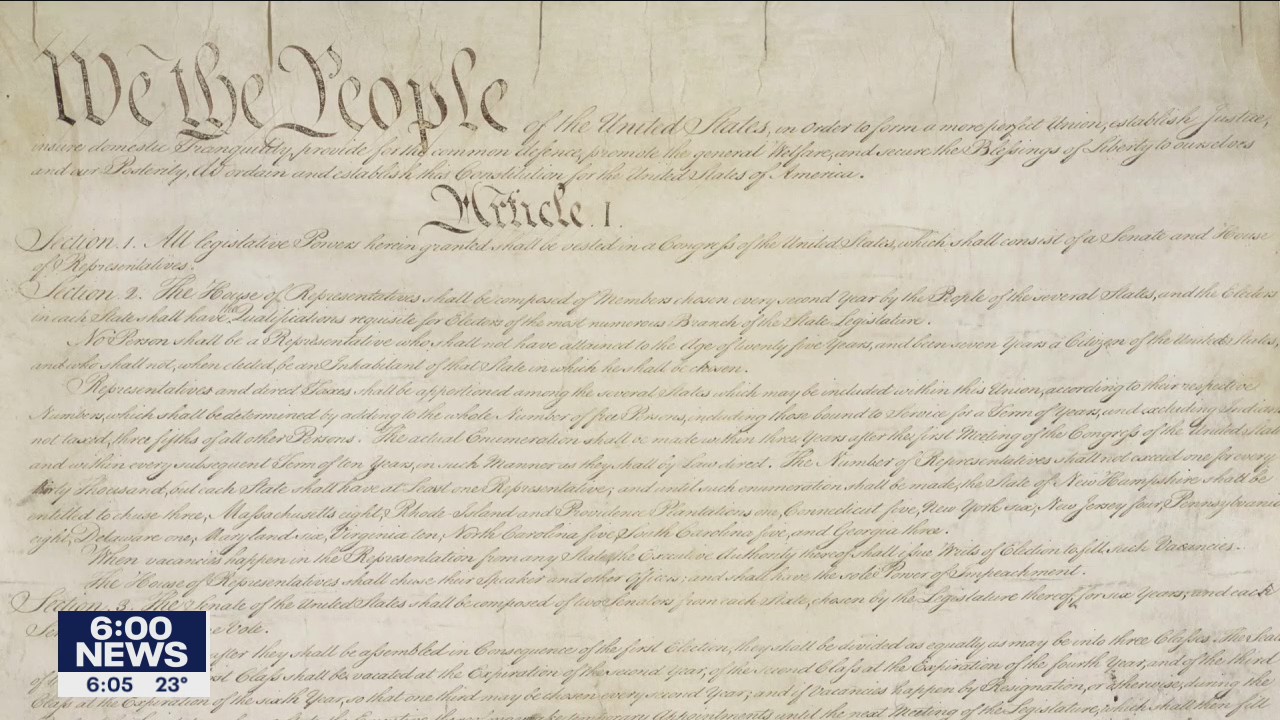 We the People of the United States, in Order to form a more perfect Union, establish Justice,
insure domestic Tranquility, provide for the common defence, promote the general Welfare, and secure the Blessings of Liberty to ourselves
and our Posterity, do ordain and establish this Constitution for the United States of America.
Article. I.
Section. 1. All legislative Powers herein granted shall be vested in a Congress of the United States, which shall consist of a Senate and House
of Representatives.
Section. 2. The House of Representatives shall be composed of Members chosen every second Year by the People of the several States, and the Electors
in each State shall have the Qualifications requisite for Electors of the most numerous Branch of the State Legislature.
No Person shall be a Representative who shall not have attained to the Age of twenty five Years, and been seven Years a Citizen of the United States,
and who shall not, when elected, be an Inhabitant of that State in which he shall be chosen.
Representatives and direct Taxes shall be apportioned among the several States which may be included within this Union, according to their respective
Numbers, which shall be determined by adding to the whole Number of free Persons, including those bound to Service for a Term of Years, and excluding Indians
not taxed, three fifths of all other Persons. The actual Enumeration shall be made within three Years after the first Meeting of the Congress of the United States,
and within every subsequent Term of ten Years, in such Manner as they shall by Law direct. The Number of Representatives shall not exceed one for every
thirty Thousand, but each State shall have at Least one Representative; and until such enumeration shall be made, the State of New Hampshire shall be
entitled to chuse three, Massachusetts eight, Rhode-Island and Providence Plantations one, Connecticut five, New York six, New Jersey four, Pennsylvania
eight, Delaware one, Maryland six, Virginia ten, North Carolina five, South Carolina five, and Georgia three.
When vacancies happen in the Representation from any State, the Executive Authority thereof shall issue Writs of Election to fill such Vacancies.
The House of Representatives shall chuse their Speaker and other Officers; and shall have the sole Power of Impeachment.
Section. 3. The Senate of the United States shall be composed of two Senators from each State, chosen by the Legislature thereof, for six Years; and each
Sen e Vote.
after they shall be assembled in Consequence of the first Election, they shall be divided as equally as may be into three Classes. The Seats
of t st Class shall be vacated at the Expiration of the second Year, of the second Class at the Expiration of the fourth Year, and of the third
Class at the Expiration of the sixth Year, so that one third may be chosen every second Year; and if Vacancies happen by Resignation, or otherwise, during the
temporary Appointments until the next Meeting of the Legislature, which shall then fill
6:00
NEWS
6:05 23°